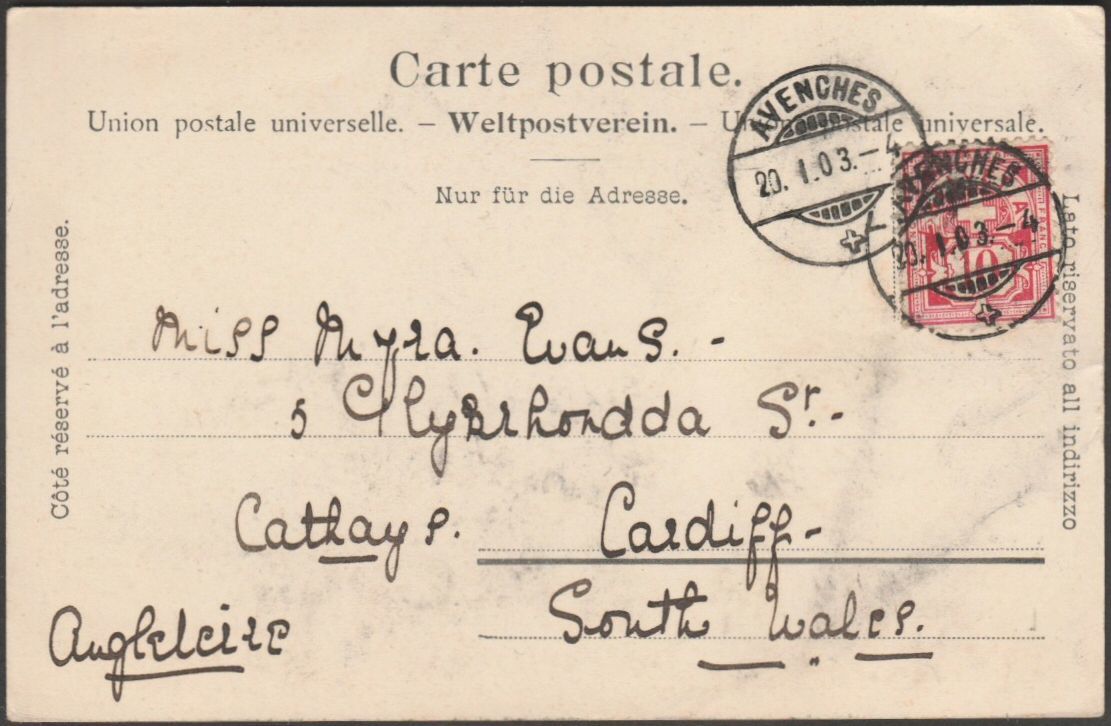 Carte postale.
Union postale universelle. – Weltpostverein. – Union postale universale.
Nur für die Adresse.
Côté réservé à l'adresse.
Lato riservato all indirizzo
AVENCHES
20. 1.03.–4
AVENCHES
20. 1.03.–4
FRANCO
10
Miss Myra. Evans. -
5 Clydzrhondda St. -
Cathays. Cardiff -
South Wales.
Angleterre